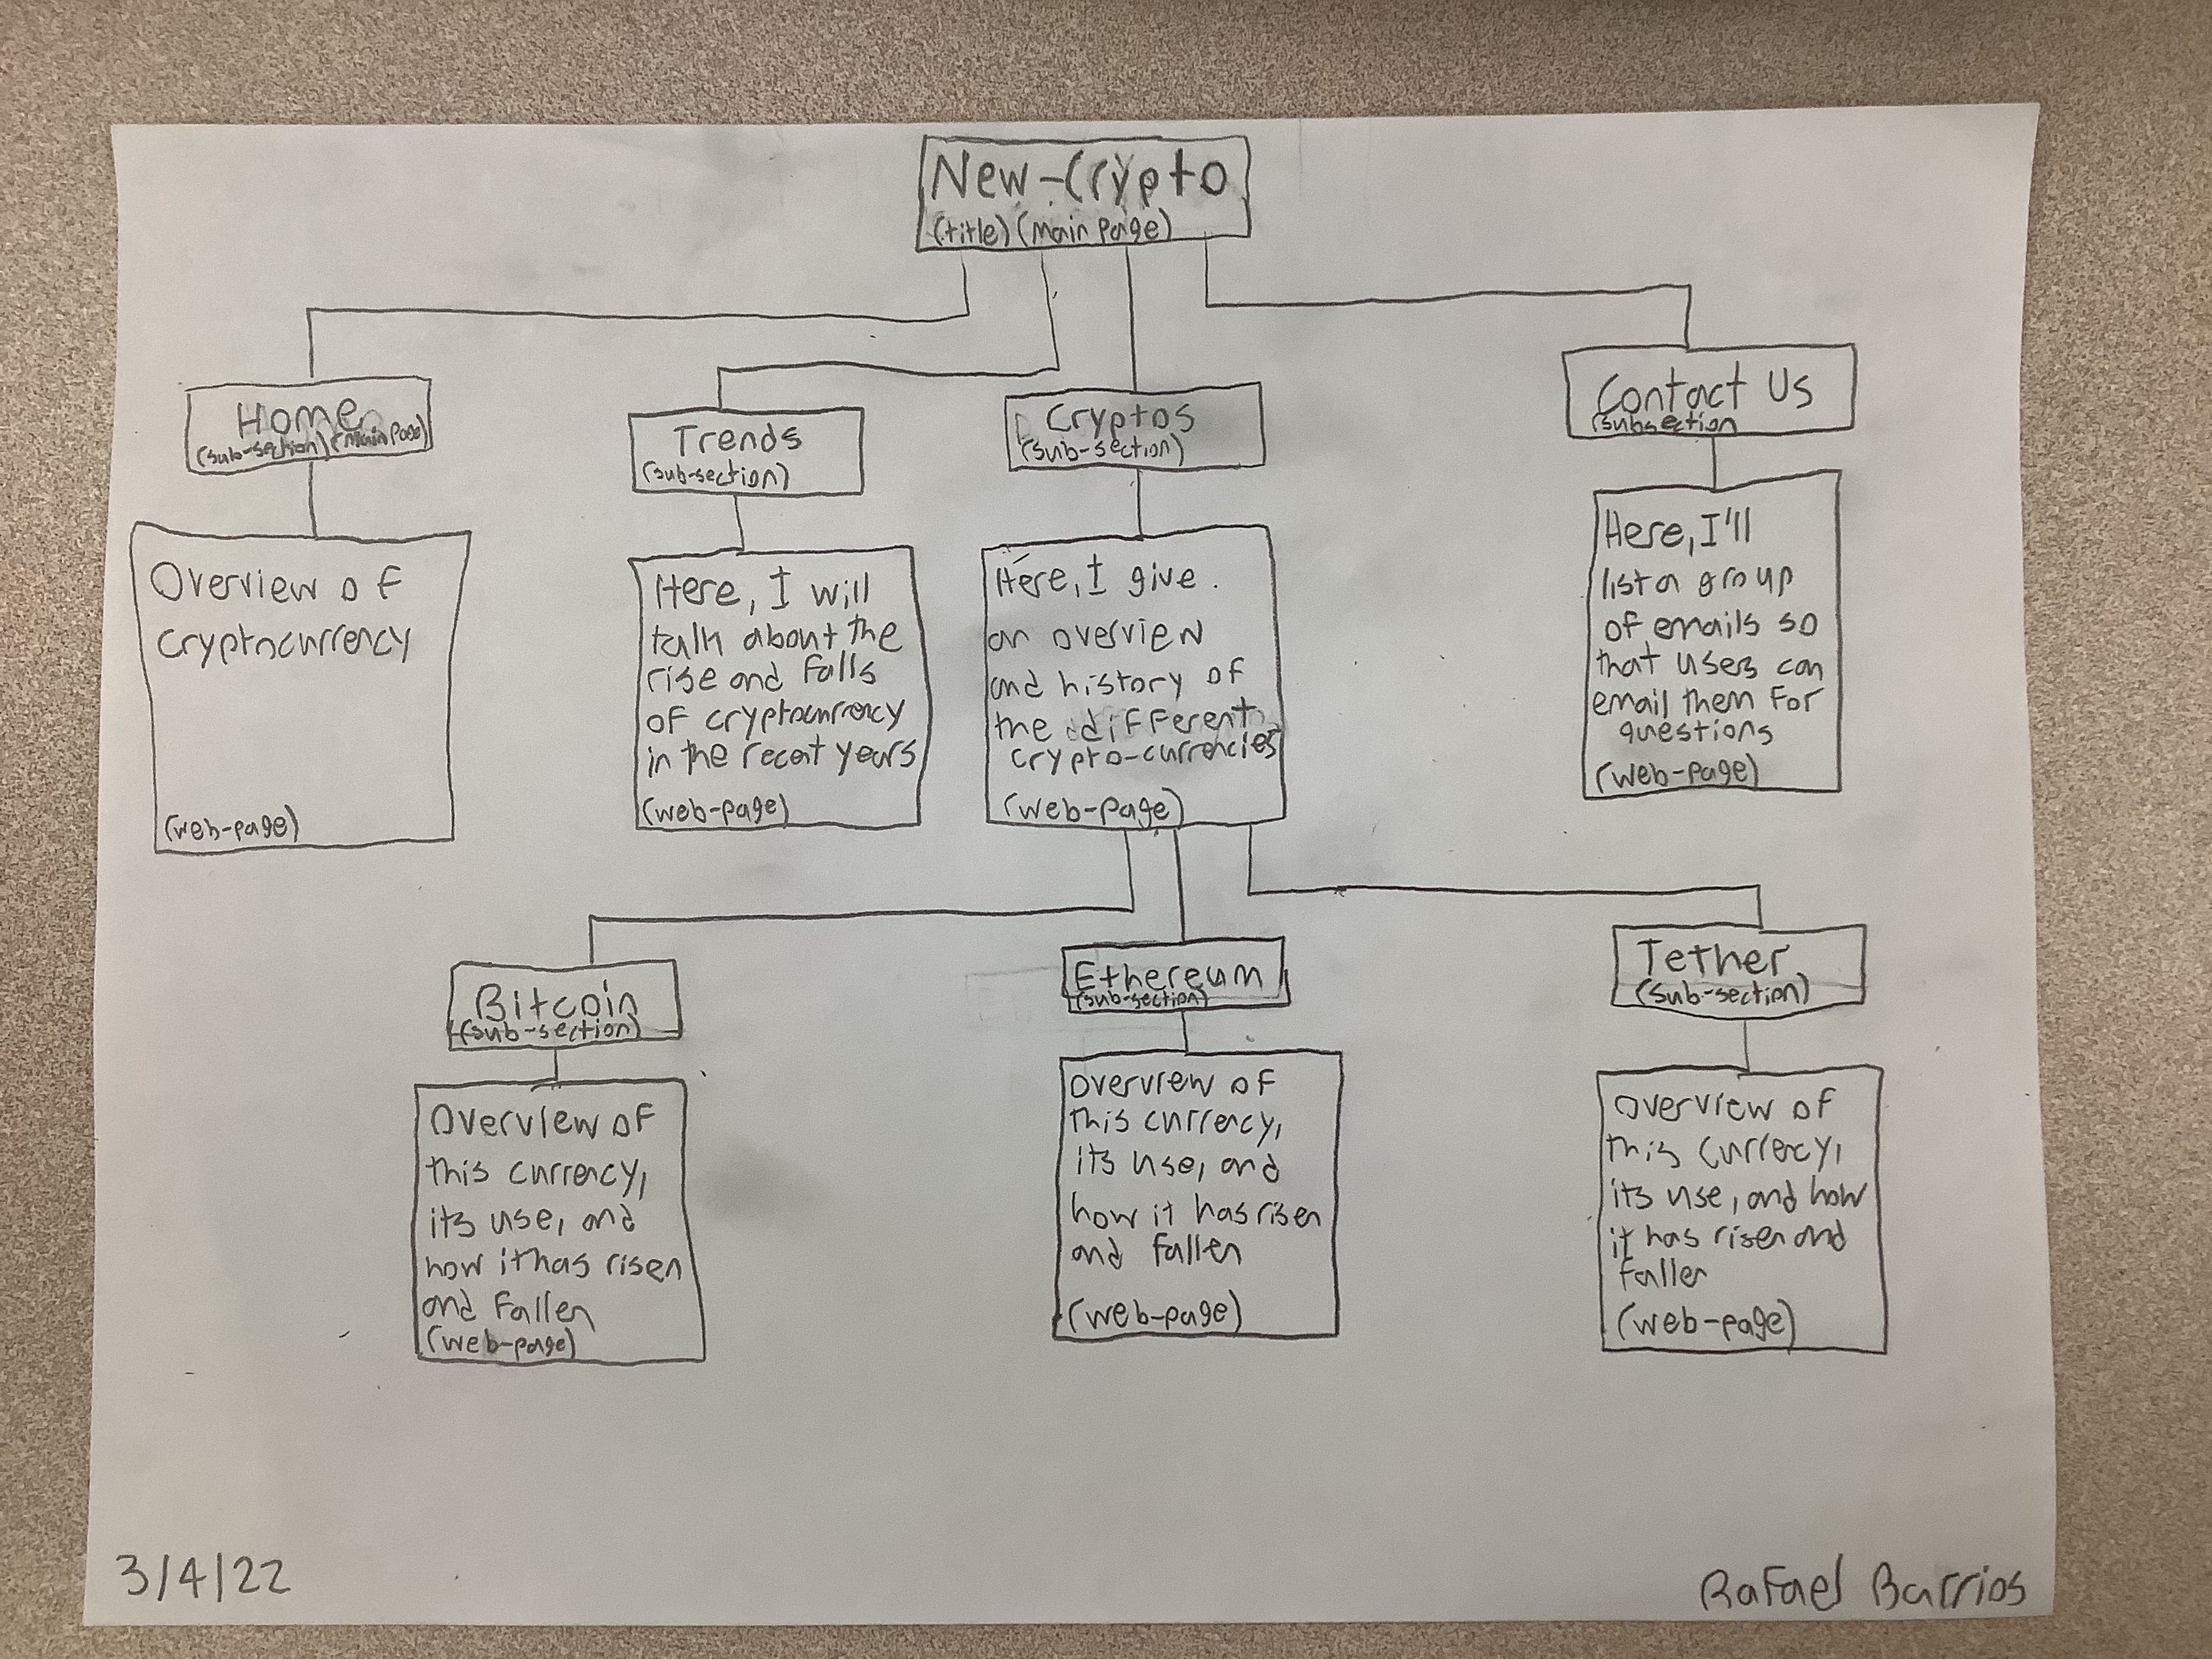 New-Crypto
(title) (Main Page)
Home
(sub-section) (Main Page)
Overview of
cryptocurrency
(web-page)
Trends
(sub-section)
Here, I will
talk about the
rise and falls
of cryptocurrency
in the recent years
(web-page)
Cryptos
(sub-section)
Here, I give
an overview
and history of
the different
crypto-currencies
(web-page)
Contact Us
(subsection
Here, I'll
list a group
of emails so
that users can
email them for
questions
(web-page)
Bitcoin
(sub-section)
Overview of
this currency,
its use, and
how it has risen
and fallen
(web-page)
Ethereum
(sub-section)
overview of
this currency,
its use, and
how it has risen
and fallen
(web-page)
Tether
(sub-section)
overview of
this currency,
its use, and how
it has risen and
fallen
(web-page)
3/4/22
Rafael Barrios